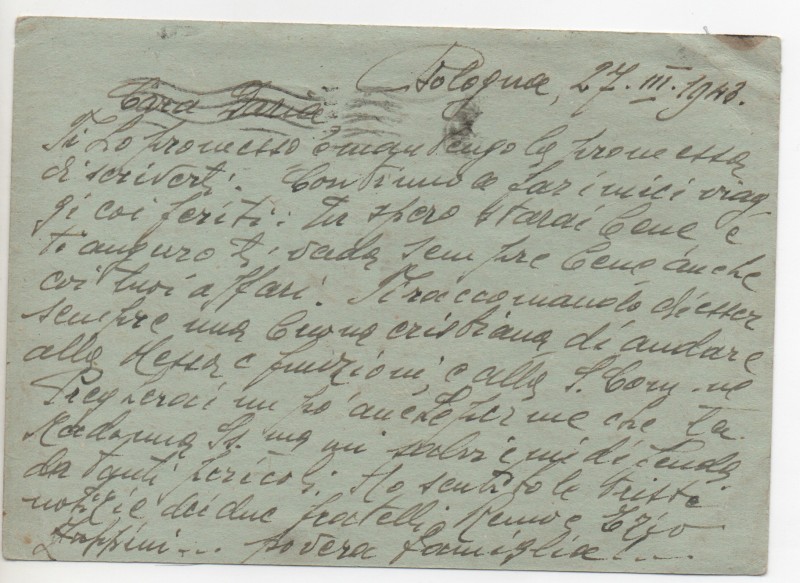 Bologna, 27. III. 1943.
Cara Daria
Ti ho promesso e mantengo la promessa
di scriverti. Continuo a far i miei viag
gi coi feriti: Tu spero starai bene e
ti auguro ti vada sempre bene anche
coi tuoi affari. Ti raccomando di esser
sempre una buona cristiana di andare
alla Messa e funzioni, e alla S. Com.ne
Pregherai un po' anche per me che la
Madonna SS.ma mi salvi e mi difenda
da tanti pericoli. Ho sentito le tristi
notizie dei due fratelli Remo e Ezio
Zuppini... povera famiglia....